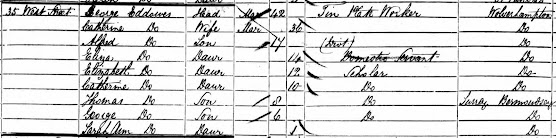 35 West Street George Eddowes Head Mar 42 Tin Plate Worker Wolverhampton
Catherine Do Wife Mar 36 Do
Alfred Do Son 17 (Do) Do
Eliza Do Daur 14 Domestic Servant Do
Elizabeth Do Daur 12 Scholar Do
Catherine Do Daur 10 Do Do
Thomas Do Son 8 Do Surrey Bermondsey
George Do Son 6 Do Do
Sarah Ann Do Daur 1 Do